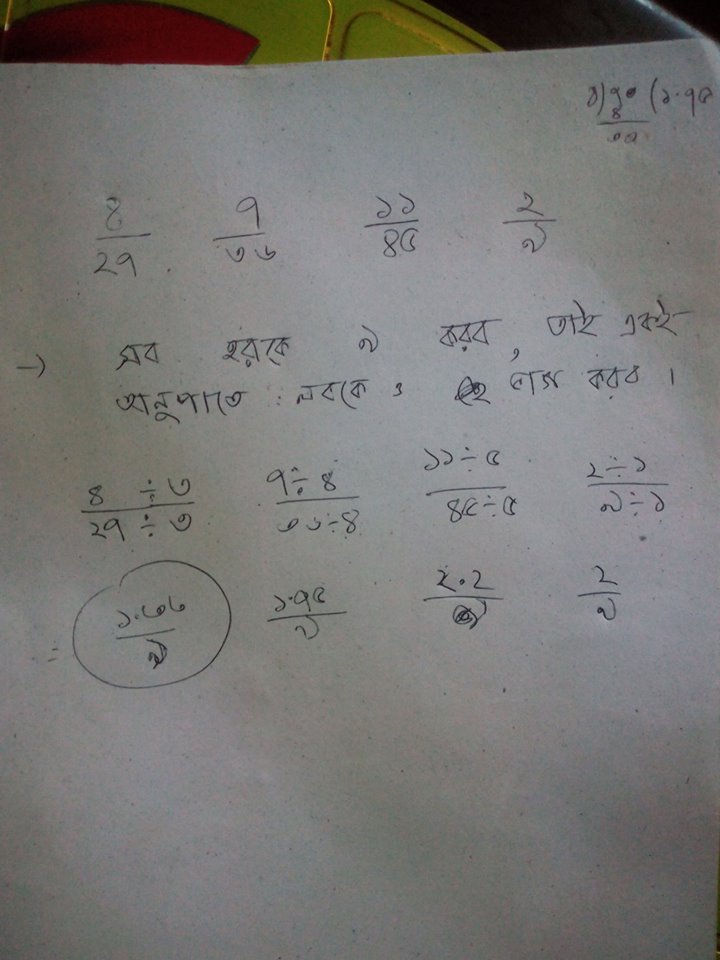 ৪) ৭০ (১.৭৫
৪
৩২
৪/২৭ ৭/৩৬ ১১/৪৫ ২/৯
→ সব হরকে ৯ করব, তাই একই
অনুপাতে লবকেও ভাগ করব।
৪ ÷ ৩/২৭ ÷ ৩ ৭ ÷ ৪/৩৬ ÷ ৪ ১১ ÷ ৫/৪৫ ÷ ৫ ২ ÷ ১/৯ ÷ ১
= ১.৩৩/৯ ১.৭৫/৯ ২.২/৯ ২/৯